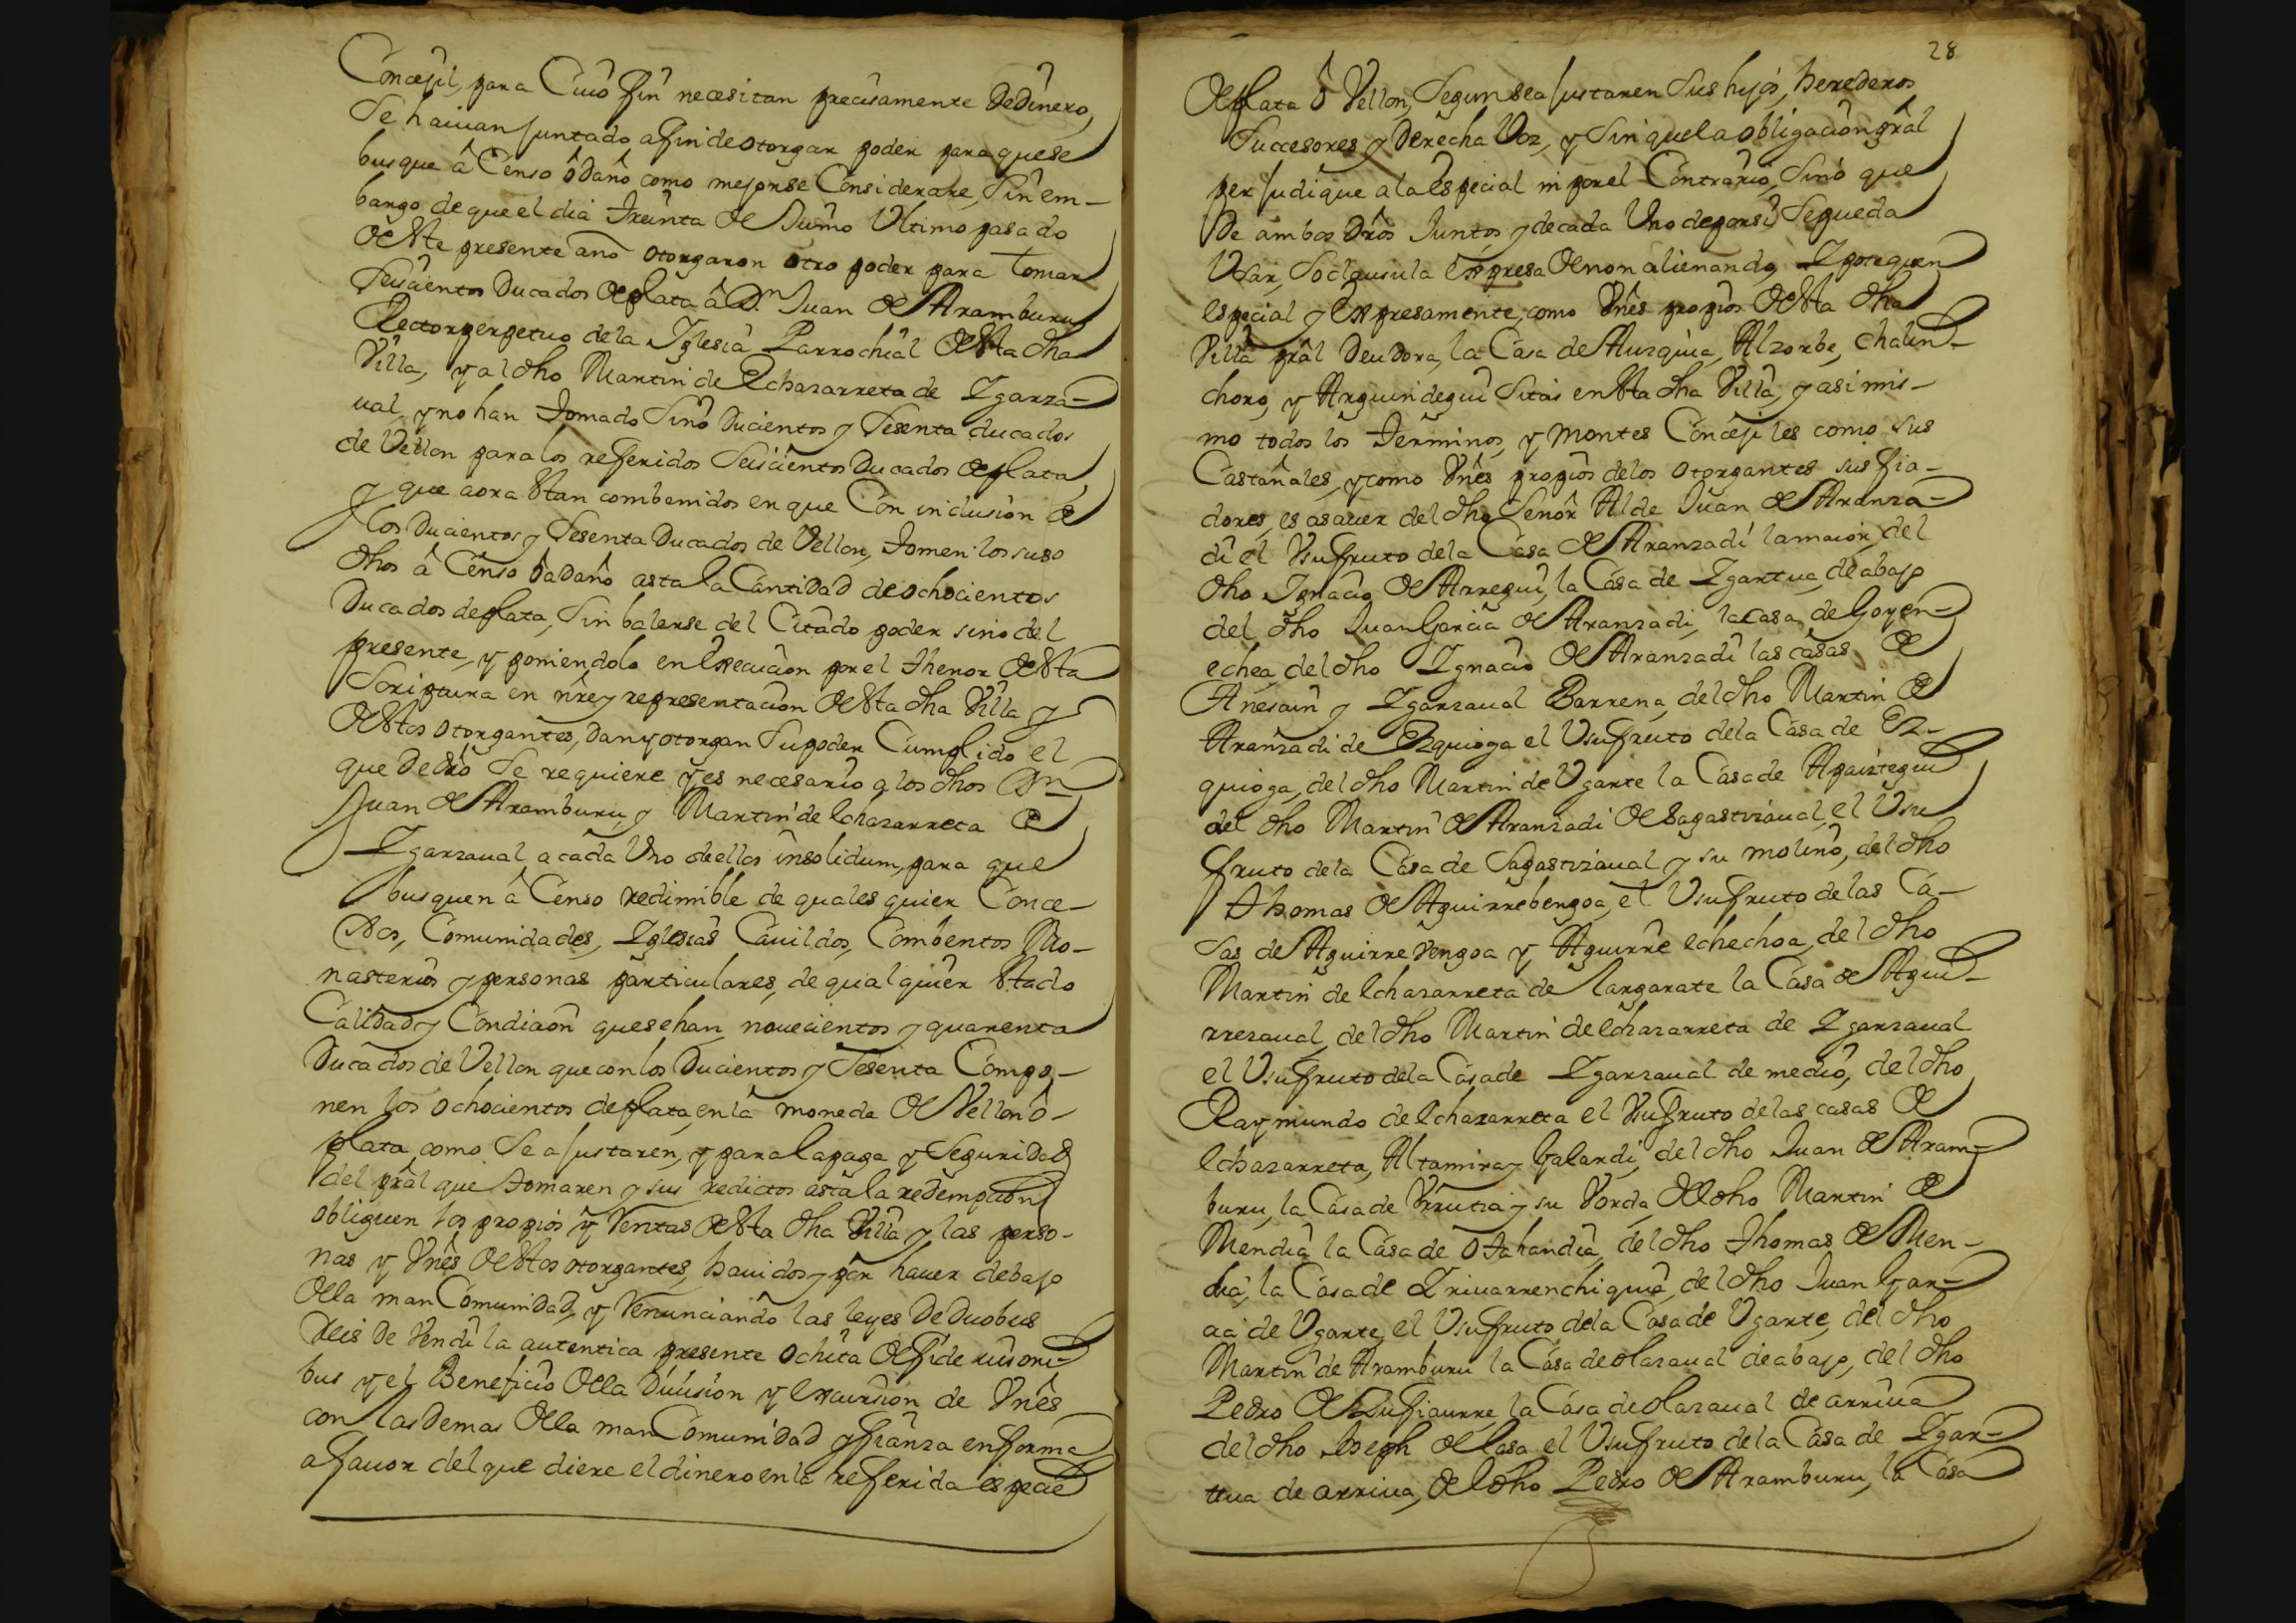 Concejil, para Cuio fin necesitan precisamente de Dinero,
Se haiuan juntado a fin de otorgar poder para que se
busque â Censo ô Daño como mejor se Considerare, Sin em-
bargo de que el dia Treinta de Junio Ultimo pasado
de este presente año otorgaron otro poder para tomar
Seiscientos Ducados de plata â Dn. Juan de Aramburu
Rector perpetuo de la Iglesia Parrochial de esta dha
Villa, y al dho Martin de Echazarreta de Ygarza-
ual, y no han tomado Sino Ducientos y Sesenta ducados
de Vellon para los referidos Seiscientos Ducados de plata,
y que aora estan combenidos en que Con inclusion de
los Ducientos y Sesenta Ducados de Vellon, tomen los suso
dhos â Censo ô a daño asta la Cantidad de ochocientos
Ducados de plata, Sin balerse del Citado poder sino del
presente, y poniendolo en Execucion por el thenor de esta
Scriptura en nre y representacion de esta dha Villa y
de estos otorgantes, dan y otorgan Su poder Cumplido el
que de dro Se requiere y es necesario a los dhos Dn
Juan de Aramburu y Martin de Echazarreta de
Ygarzaual a cada Uno de ellos insolidum, para que
busquen â Censo redimible de quales quier Conce-
Jos, Comunidades, Iglesias Cauildos, Combentos Mo-
nasterios y personas particulares, de qualquier estado
Calidad y Condicion que sehan novecientos y quarenta
Ducados de Vellon que con los Ducientos y Sesenta Compo-
nen los ochocientos de plata, en la moneda de Vellon ô
plata como Se ajustaren, y para la paga y Seguridad
del pral que tomaren y sus redictos asta la redempcion
obliguen los propios y Rentas de esta dha Villa y las perso-
nas y Vnes de estos otorgantes, hauidos y por hauer debajo
de la man Comunidad, y Renunciando las leyes De Duobus
Reis De Vendi la autentica presente ochita de fide iusori-
bus y el Beneficio de la Diuision y Excursion de Vnes
con las Demas de la man Comunidad y fianza en forma
a fauor del que diere el dinero en la referida especie
28
de plata ô Vellon, Segun se ajustaren Sus hijos, herederos
Succesores y Derecha Voz, y Sin que la obligacion gral
perjudique a la especial ni por el Contrario, Sino que
de ambos Dros Juntos y de cada Uno de por si Se pueda
Usar, So clausula Expresa de non alienando, Ypotequen
especial y Expresamente, como Vnes propios de esta dha
Villa pral Deudora, la Casa de Ausquia, Alzorbe, Chalin-
choro, y Arguindegui Sitas en esta dha Villa, y asi mis-
mo todos los terminos, y montes Concejiles como sus
Castañales, y como Vnes propios de los otorgantes sus fia-
dores, es asauer del dho Señor Alde Juan de Aranza-
di el Usufruto de la Casa de Aranzadi la maior, del
dho Ignacio de Arregui, la Casa de Ygartua de abajo
del dho Juan Garcia de Aranzadi, la casa de Goyen-
echea, del dho Ygnacio de Aranzadi las casas de
Anesain y Ygarzaual Barrena, del dho Martin de
Aranzadi de Ezquioga el Usufruto de la Casa de Ez-
quioga, del dho Martin de Ugarte la Casa de Apaiztegui
del dho Martin de Aranzadi de Sagastizaual, el Usu
fruto de la Casa de Sagastizaual y su molino, del dho
Thomas de Aguirrebengoa, el Usufruto de las Ca-
sas de Aguirrevengoa y Aguirre echechoa, del dho
Martin de Echazarreta de Largarate la Casa de Agui-
rrezaual, del dho Martin de Echazarreta de Ygarzaual
el Usufruto de la Casa de Ygarzaual de medio, del dho
Raymundo de Echazarreta el Usufruto de las casas de
Echazarreta, Altamira y Galardi, del dho Juan de Aram-
buru, la Casa de Urrutia y su Borda, del dho Martin de
Mendia la Casa de Otahandia, del dho Thomas de Men-
dia, la Casa de Yriuarrenchiquia, del dho Juan Gar-
cia de Ugarte, el Usufruto de la Casa de Ugarte, del dho
Martin de Aramburu la Casa de olazaual de abajo, del dho
Pedro de la Casa de olazaual de arriua
del dho Joseph de Lasa el Usufruto de la Casa de Ygar-
ttua de arriua, del dho Pedro de Aramburu, la Casa